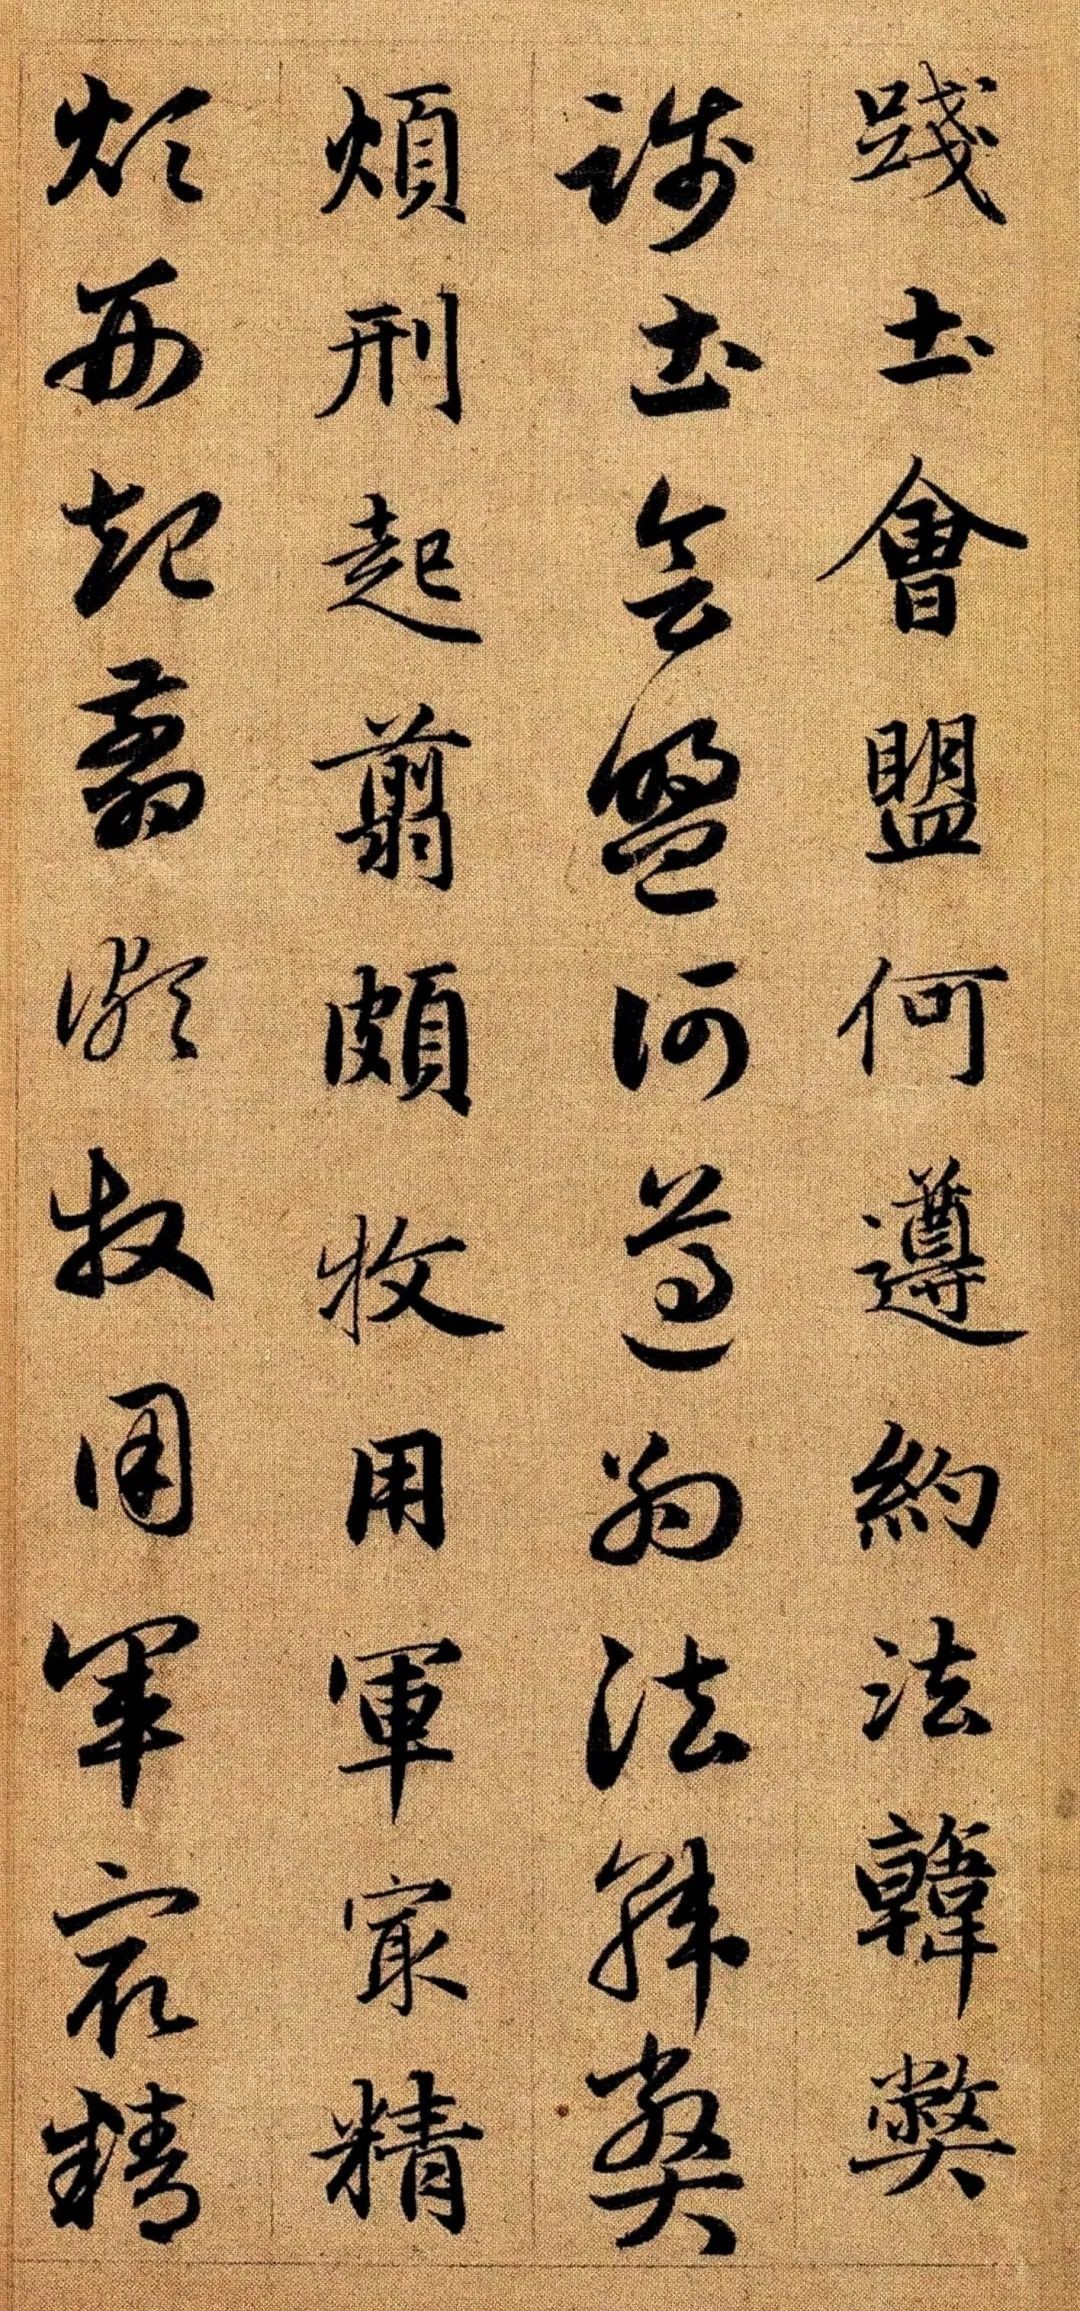 踐土會盟何遵約法韓弊
踐土會盟何遵約法韓弊
煩刑起翦頗牧用軍宼精
煩刑起翦頗牧用軍宼精